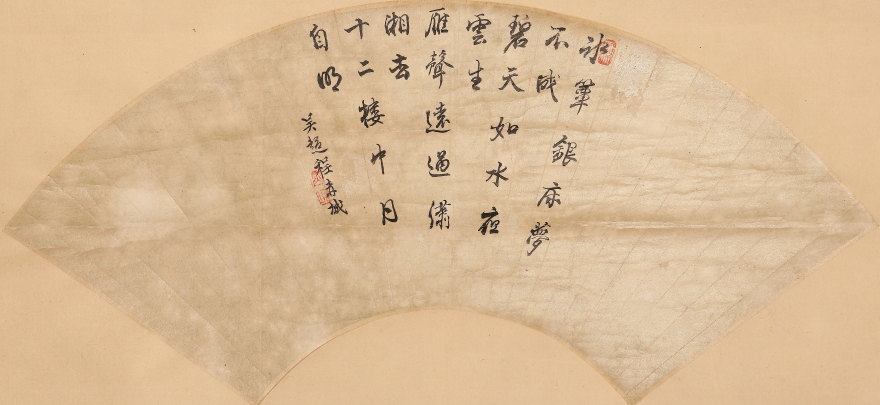 冰簟銀床夢
不成
碧天如水夜
雲生
雁聲遠過瀟
湘去
十二樓中月
自明
吳趨程城